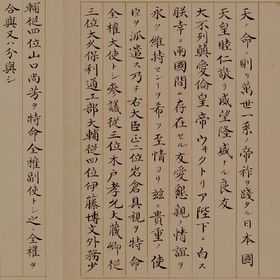 天ノ命ニ則リ萬世一系ノ帝祚ヲ踐タル日本國
天皇睦仁敬テ威望隆盛ナル良友
大不列顛愛倫皇帝ウヰクトリア陛下ニ白ス
朕幸ニ兩國間ニ存在セル友愛懇親ノ情誼ヲ
永ク維持センヿヲ希フ至情ヨリ玆ニ貴重ノ使
臣ヲ派遣ス乃チ右大臣正二位岩倉具視ヲ特命
全權大使トシ參議從三位木戸孝允大藏卿從
三位大久保利通工部大輔從四位伊藤博文外務少
輔從四位山口尚芳ヲ特命全權副使トシ之ニ全權ヲ
合與又ハ分與シ